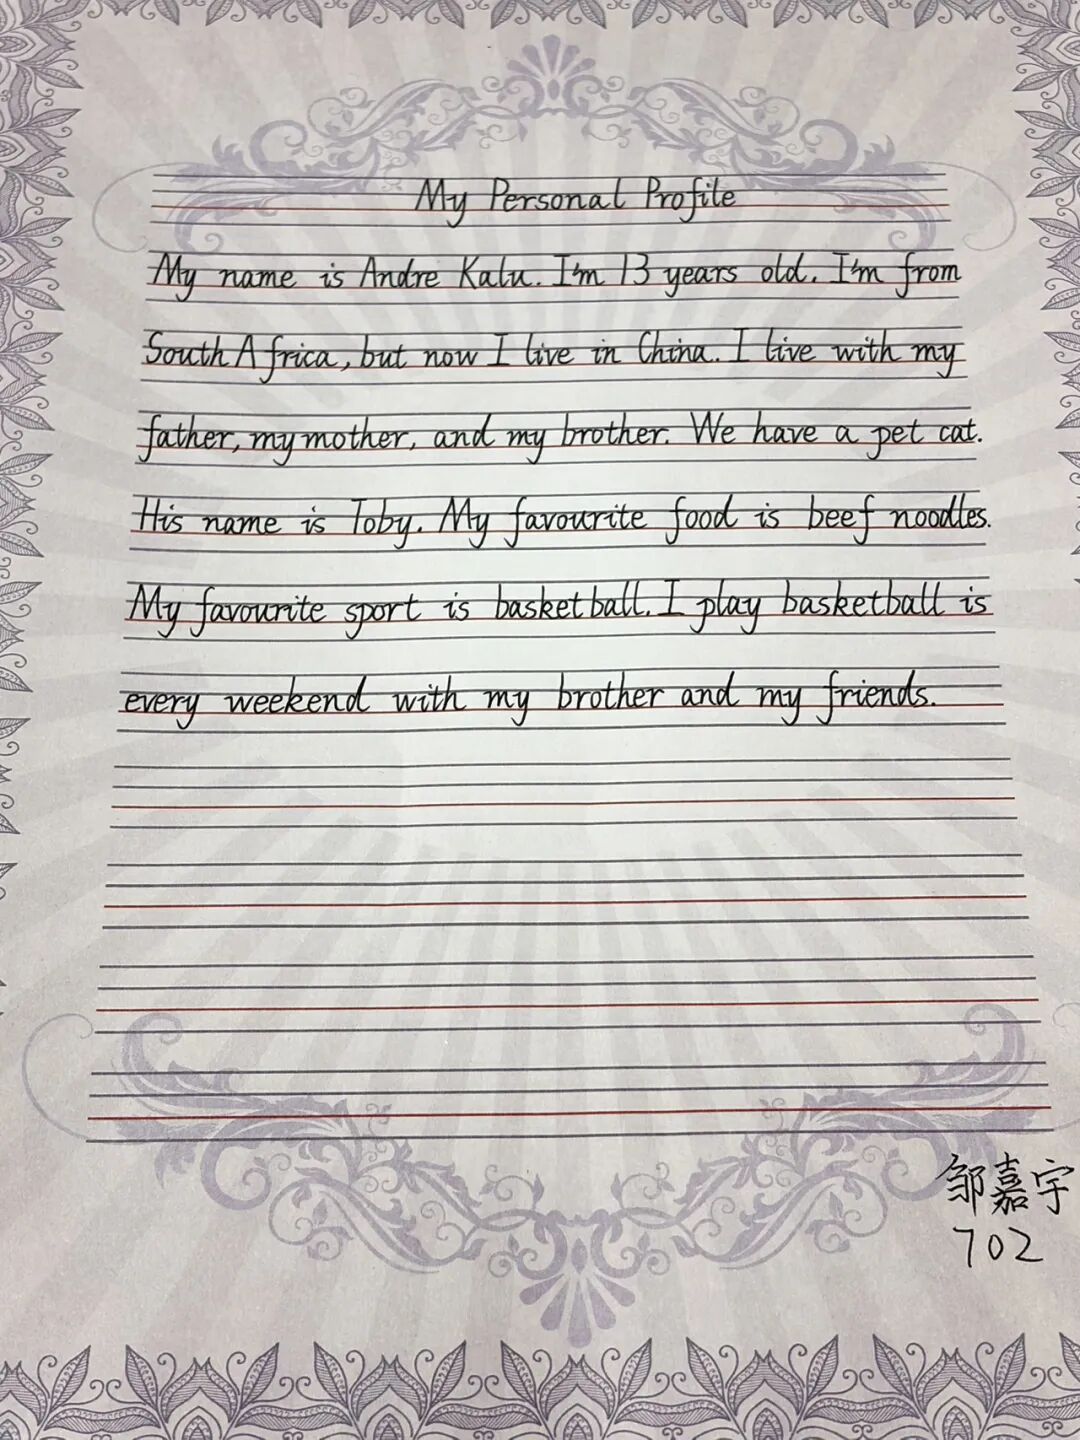 My Personal Profile
My name is Andre Kalu. I'm 13 years old. I'm from
South Africa, but now I live in China. I live with my
father, my mother, and my brother. We have a pet cat.
His name is Toby. My favourite food is beef noodles.
My favourite sport is basketball. I play basketball is
every weekend with my brother and my friends.
邹嘉宇
702